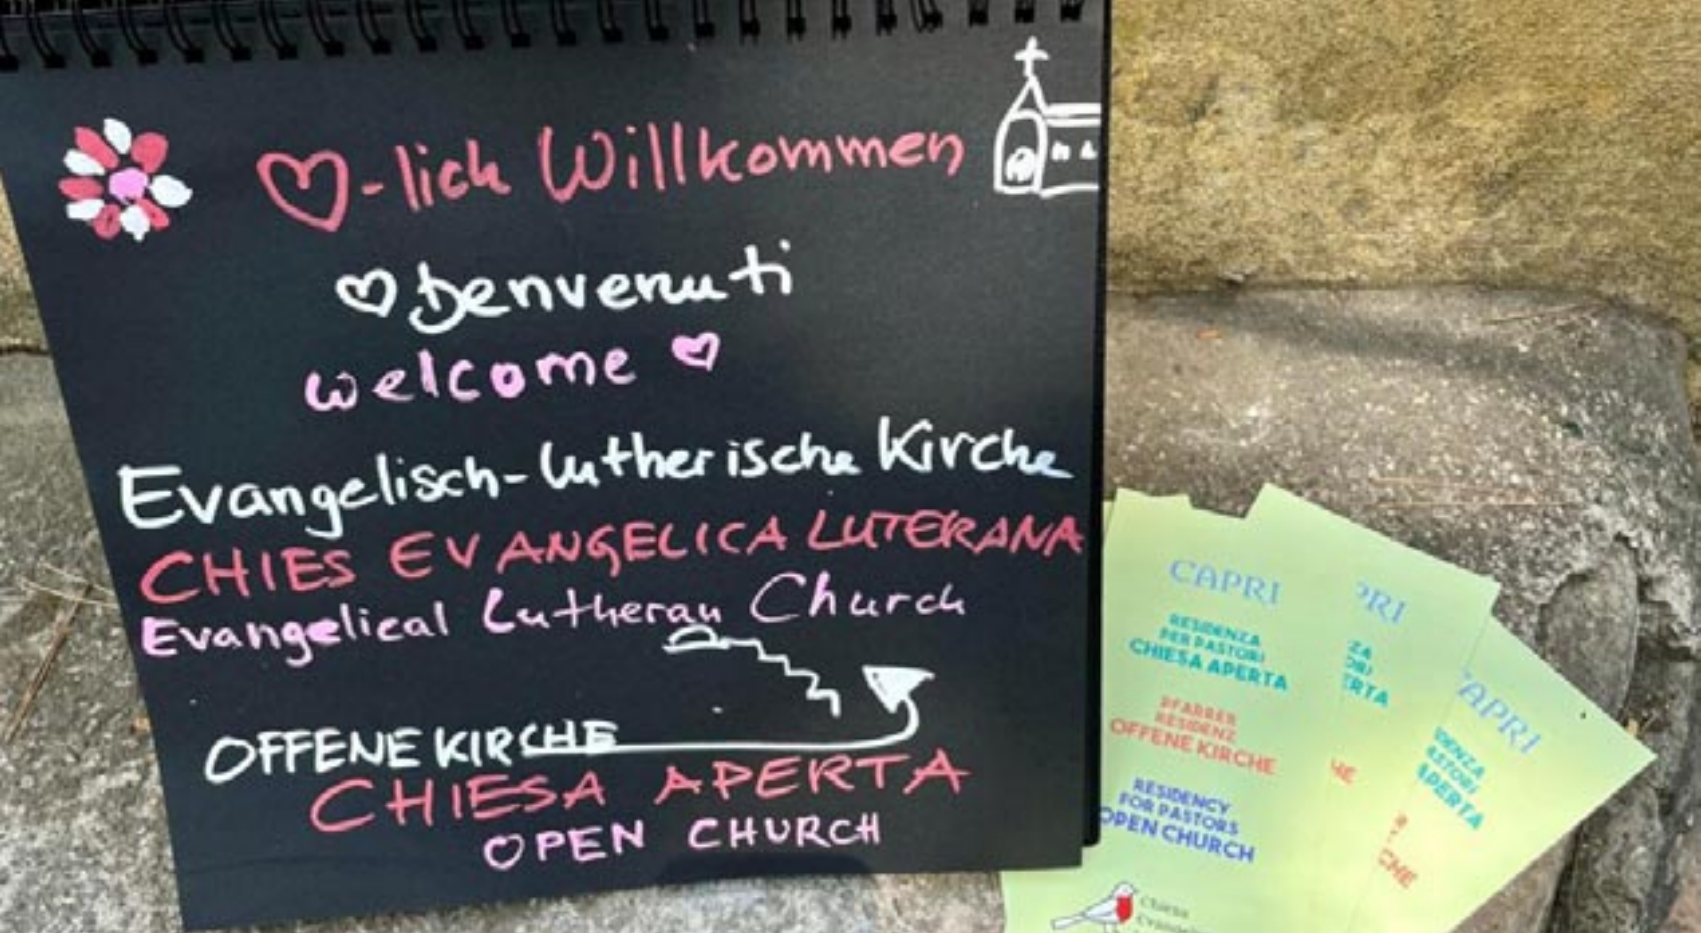 ♡-lich Willkommen
♡ benvenuti
welcome ♡
Evangelisch-lutherische Kirche
CHIES EVANGELICA LUTERANA
Evangelical Lutheran Church
OFFENE KIRCHE
CHIESA APERTA
OPEN CHURCH
CAPRI
RESIDENZA
PER PASTORI
CHIESA APERTA
PFARRER
RESIDENZ
OFFENE KIRCHE
RESIDENCY
FOR PASTORS
OPEN CHURCH
Chiesa
PRI
ZA
ORI
ERTA
HE
CAPRI
DENZA
ASTORI
APERTA
CHE